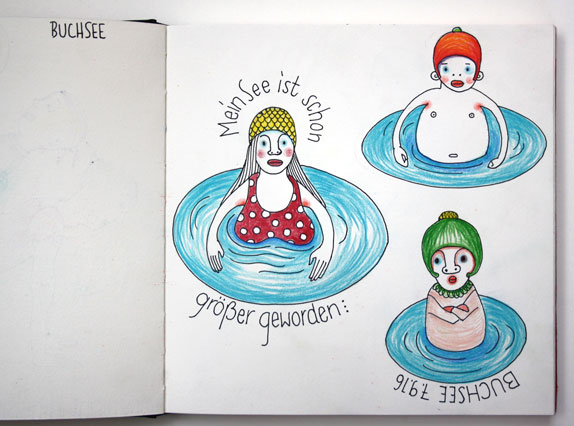 BUCHSEE
Mein See ist schon
größer geworden:
BUCHSEE 7.9.16